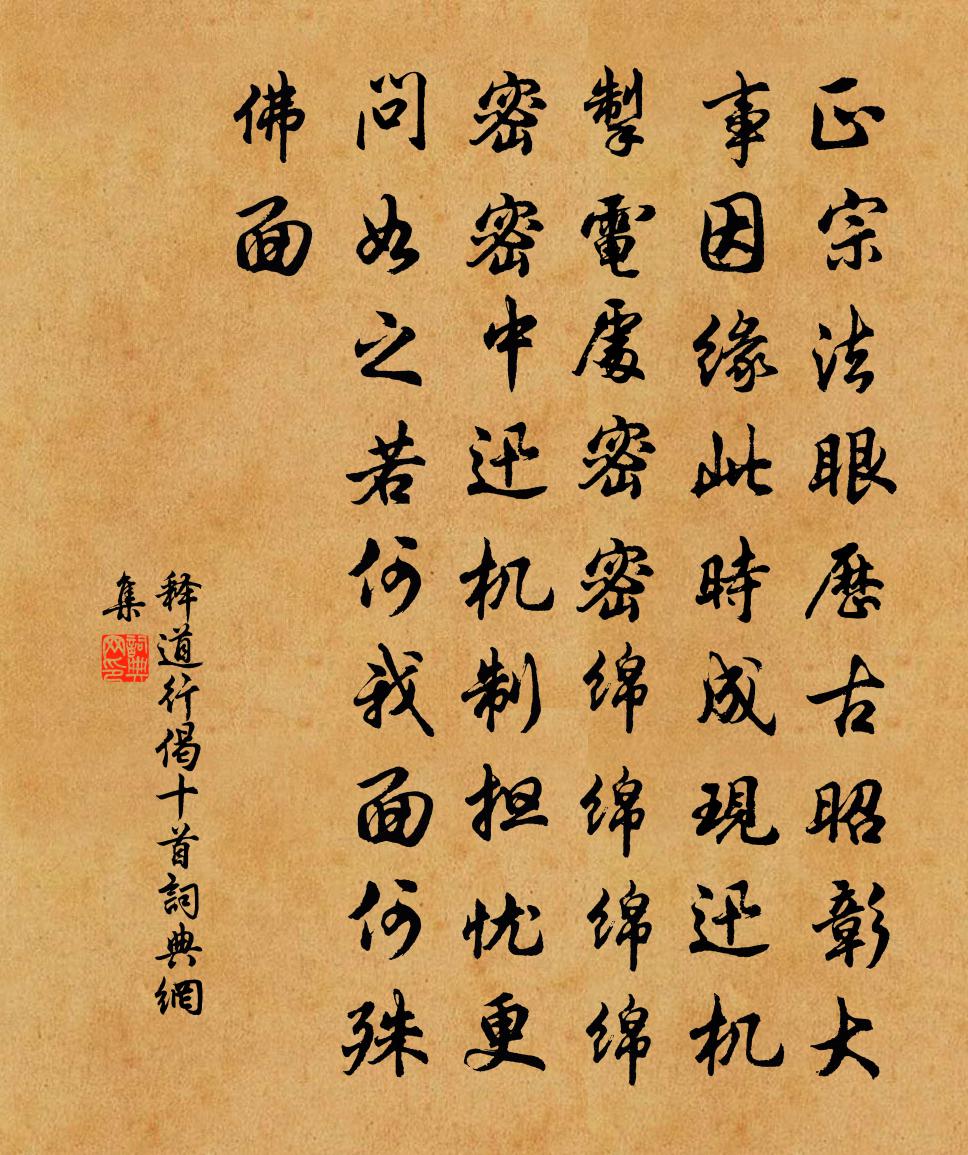 正宗法眼歷古昭彰大
事因緣此時成現迅机
掣電處密密綿綿綿綿
密密中迅机制担忧更
問如之若何我面何殊
佛面
释道行偈十首詞典網
集
詞典
网印